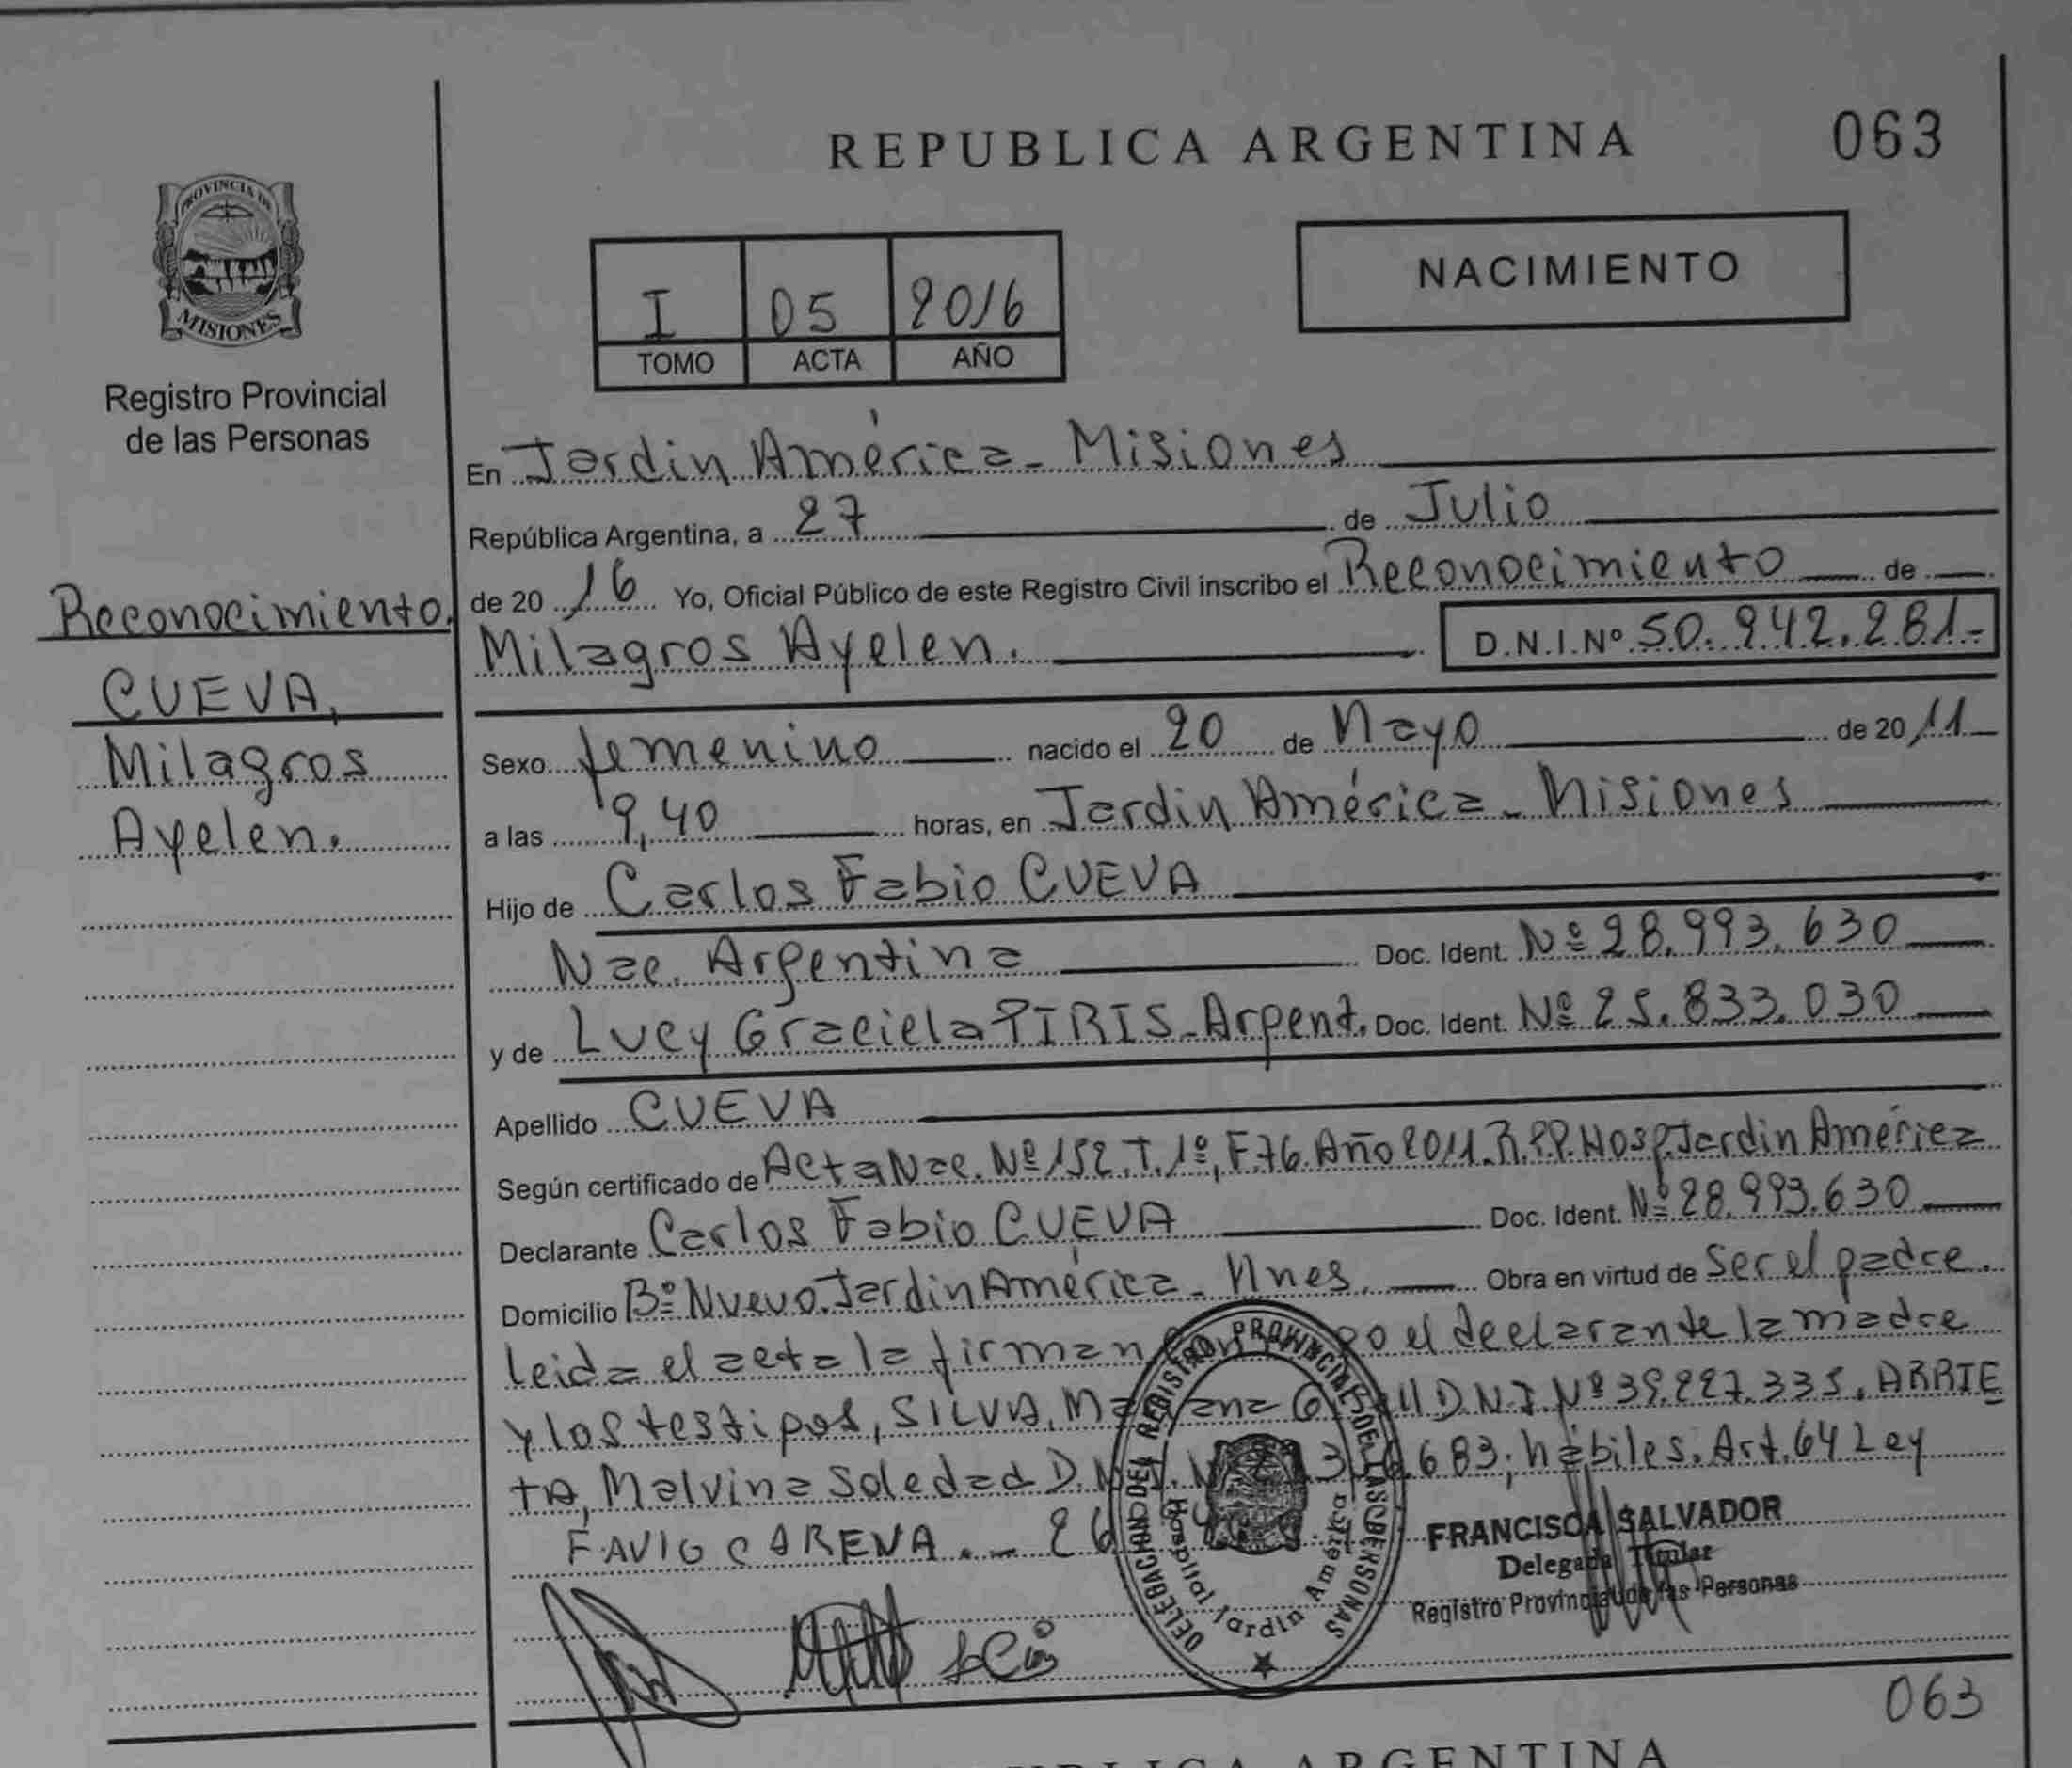 REPUBLICA ARGENTINA
063
PROVINCIA DE
MISIONES
Registro Provincial
de las Personas
I 05 2016
TOMO ACTA AÑO
NACIMIENTO
Reconocimiento.
CUEVA,
Milagros
Ayelen.
En Jardin América - Misiones
República Argentina, a 27 de Julio
de 20 16 Yo, Oficial Público de este Registro Civil inscribo el Reconocimiento de
Milagros Ayelen. D.N.I.Nº 50.942.281.-
Sexo femenino nacido el 20 de Mayo de 20 11
a las 9,40 horas, en Jardin América - Misiones
Hijo de Carlos Fabio CUEVA
Nac. Argentina Doc. Ident. Nº 28.993.630
y de Lucy Graciela PIRIS - Argent. Doc. Ident. Nº 25.833.030
Apellido CUEVA
Según certificado de Acta Nac. Nº 152. T. 1º, F. 76. Año 2011. R.P.P. Hosp. Jardin América
Declarante Carlos Fabio CUEVA Doc. Ident. Nº 28.993.630
Domicilio Bº Nuevo. Jardin América - Mnes. Obra en virtud de Ser el padre.
leida el acta la firman el declarante la madre
y los testigos, SILVA, D.N.I. Nº 39.227.335. ARRIE
TA, Malvina Soledad D.N.I. 683; hábiles. Art. 64 Ley
FAVIO CARENA. -
DELEGACION DEL REGISTRO PROVINCIAL DE LAS PERSONAS
Hospital Jardin América
FRANCISCA SALVADOR
Delegada Titular
Registro Provincial de las Personas
063
REPUBLICA ARGENTINA